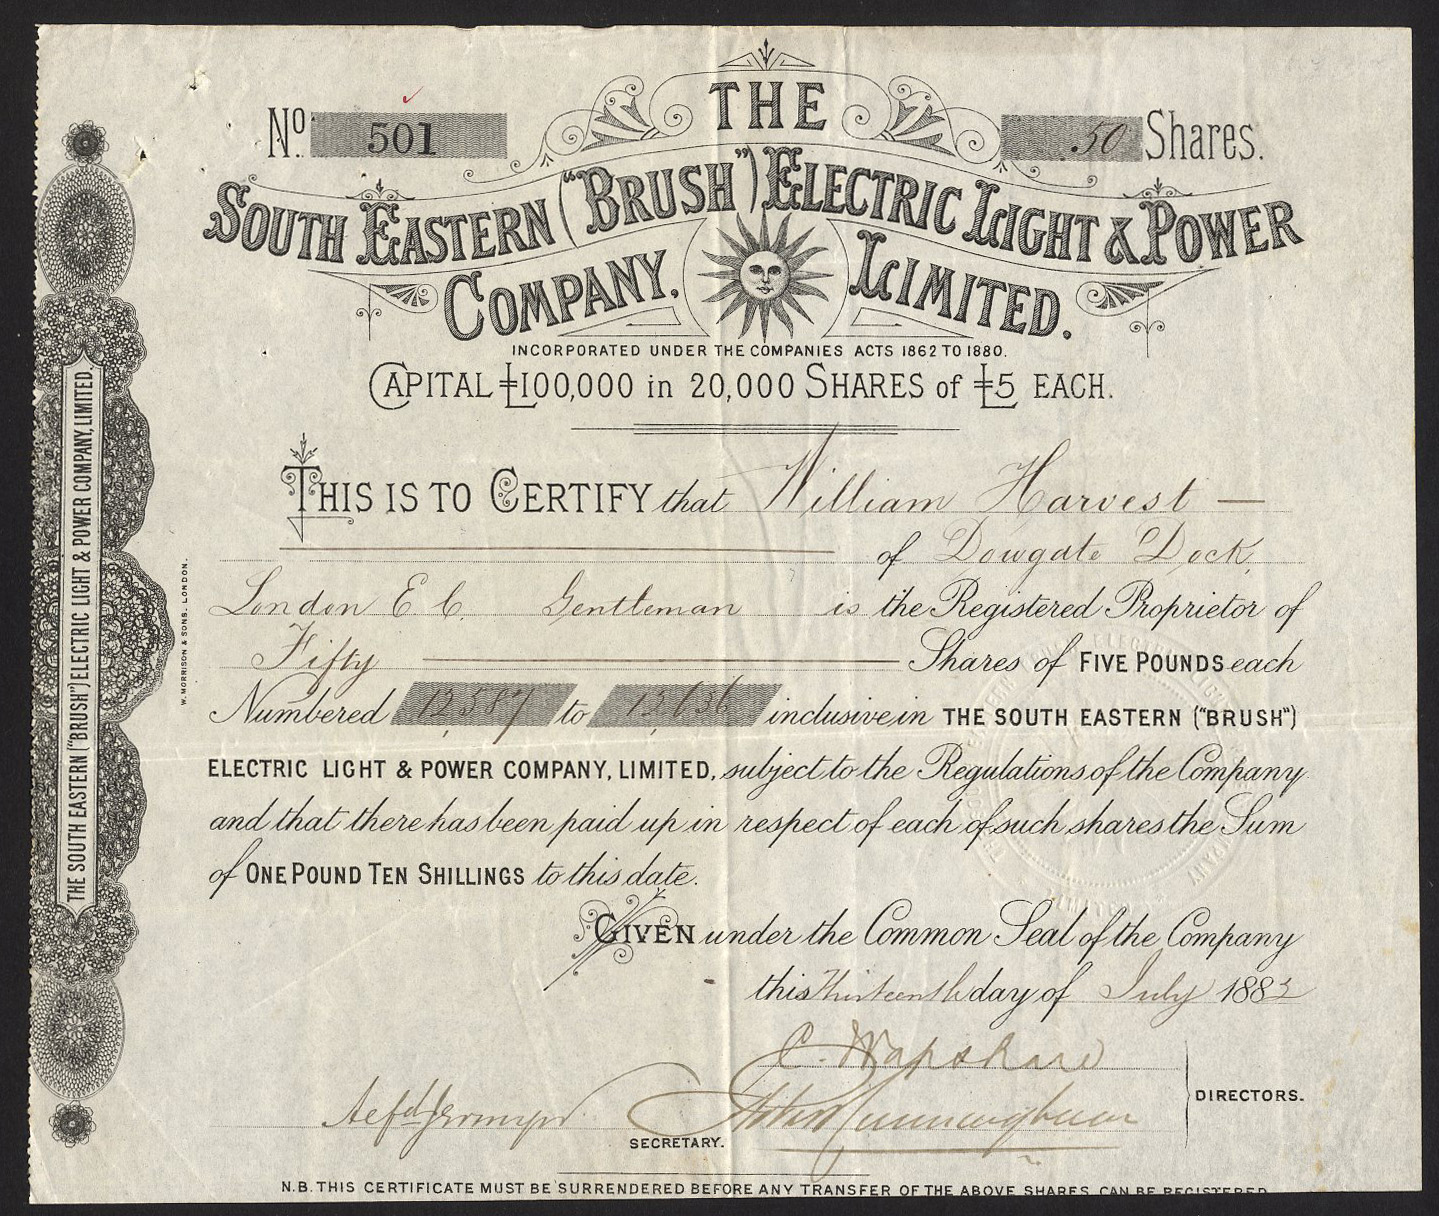 No. 501
50 Shares.
THE
SOUTH EASTERN ("BRUSH") ELECTRIC LIGHT & POWER
COMPANY, LIMITED.
INCORPORATED UNDER THE COMPANIES ACTS 1862 TO 1880.
CAPITAL £100,000 in 20,000 SHARES of £5 EACH.
THIS IS TO CERTIFY that William Harvest —
of Dowgate Dock,
London E C. Gentleman is the Registered Proprietor of
Fifty Shares of FIVE POUNDS each
Numbered 12,587 to 12,636 inclusive in THE SOUTH EASTERN ("BRUSH")
ELECTRIC LIGHT & POWER COMPANY, LIMITED, subject to the Regulations of the Company
and that there has been paid up in respect of each of such shares the Sum
of ONE POUND TEN SHILLINGS to this date.
GIVEN under the Common Seal of the Company
this Thirteenth day of July 1882
DIRECTORS.
SECRETARY.
N.B. THIS CERTIFICATE MUST BE SURRENDERED BEFORE ANY TRANSFER OF THE ABOVE SHARES CAN BE REGISTERED
THE SOUTH EASTERN ("BRUSH") ELECTRIC LIGHT & POWER COMPANY, LIMITED.
W. MORRISON & SONS, LONDON.